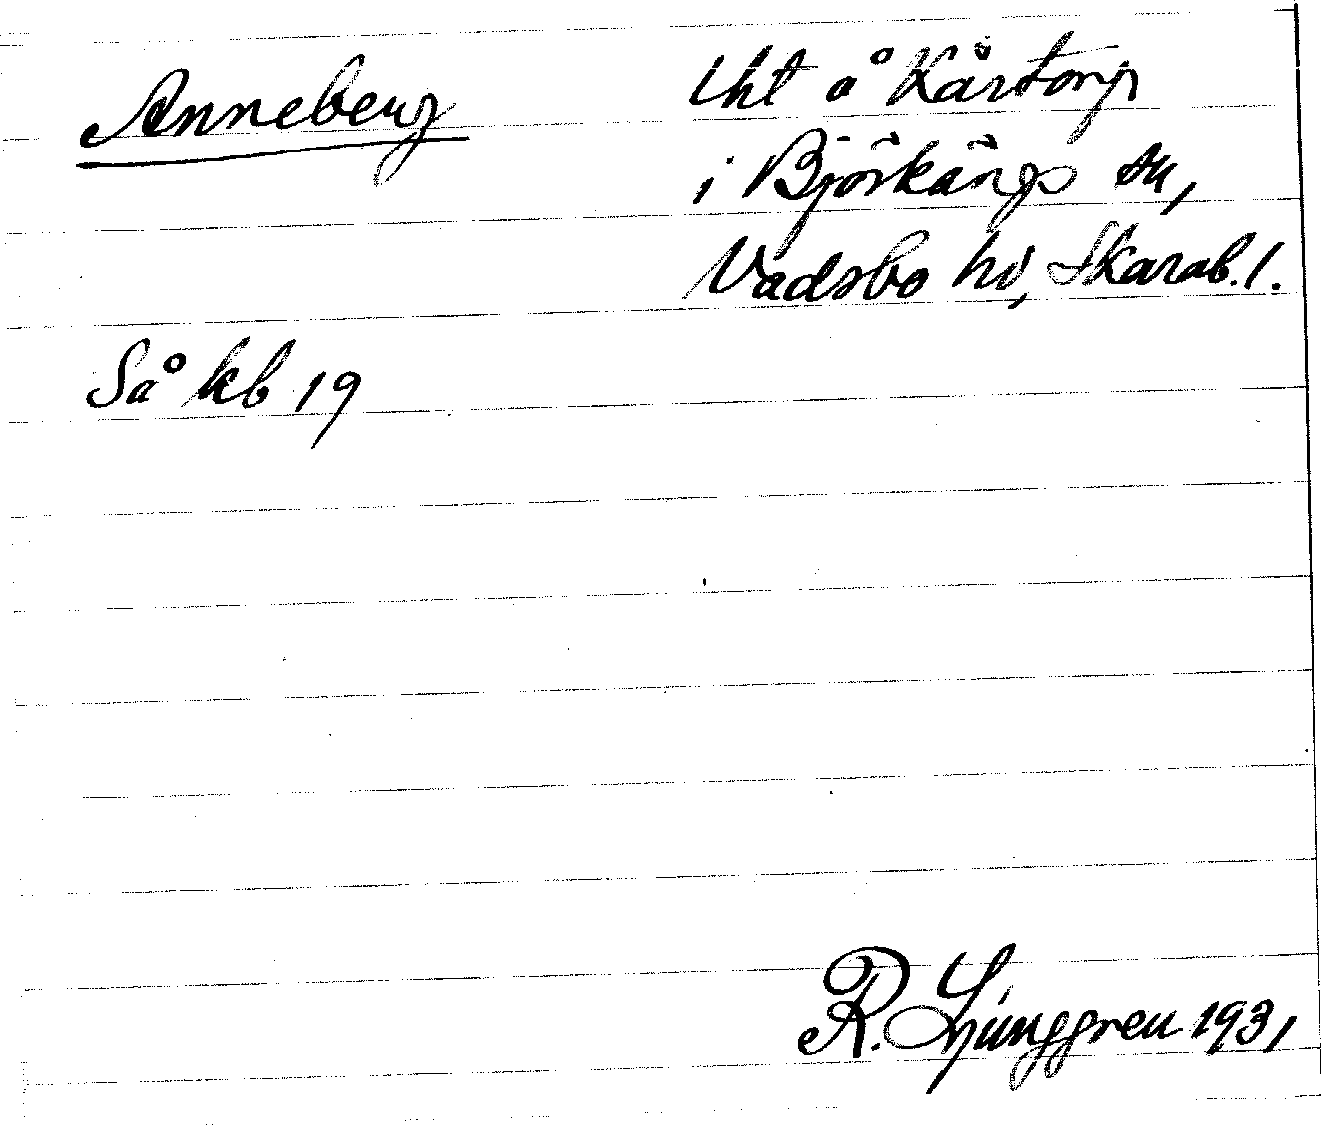 Anneberg
Lht å Kårtorp
i Björkängs sn,
Vadsbo hd, Skarab. l.
Så kb 19
R. Ljunggren 1931